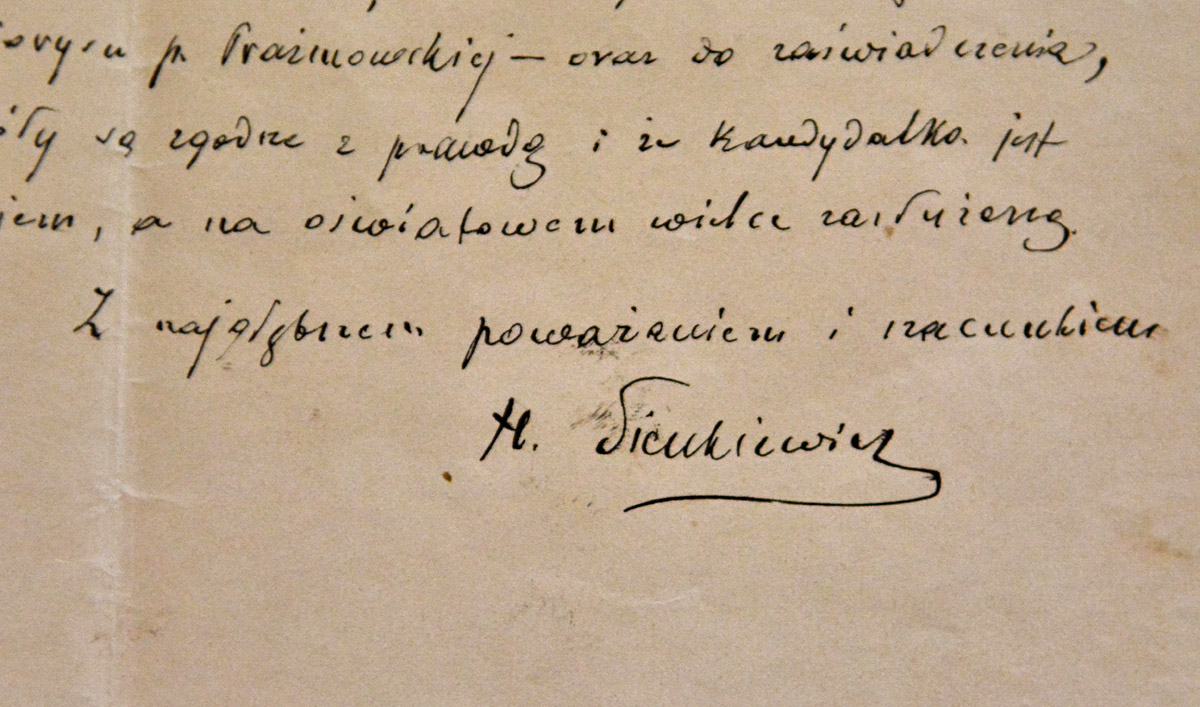 p. Prażmowskiej — oraz do zaświadczenia,
są zgodne z prawdą i że kandydatka jest
, a na oświatowem wielce zasłużoną.
Z najgłębszem poważaniem i szacunkiem
H. Sienkiewicz